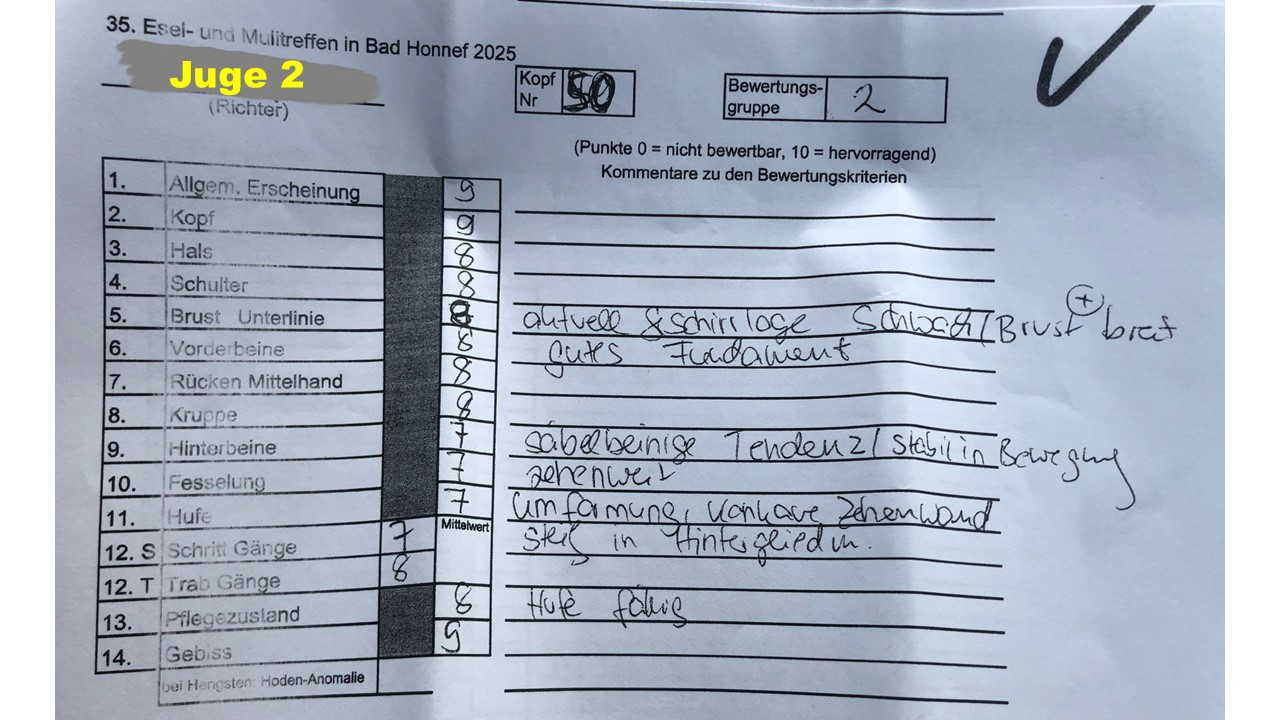 35. Esel- und Mulitreffen in Bad Honnef 2025
Juge 2
(Richter)
Kopf Nr 50
Bewertungs-gruppe 2
(Punkte 0 = nicht bewertbar, 10 = hervorragend)
Kommentare zu den Bewertungskriterien
1. Allgem. Erscheinung 9
2. Kopf 9
3. Hals 8
4. Schulter 8
5. Brust Unterlinie aktuell Schwach / Brust + breit
6. Vorderbeine 8 gutes Fundament
7. Rücken Mittelhand 8
8. Kruppe 8
9. Hinterbeine 7 säbelbeinige Tendenz / stabil in Bewegung
10. Fesselung 7 zehenweit
11. Hufe 7 Umformung, konkave Zehenwand
Mittelwert
12. S Schritt Gänge 7 steif in Hintergliedm.
12. T Trab Gänge 8
13. Pflegezustand 8 Hufe
14. Gebiss 9
bei Hengsten: Hoden-Anomalie